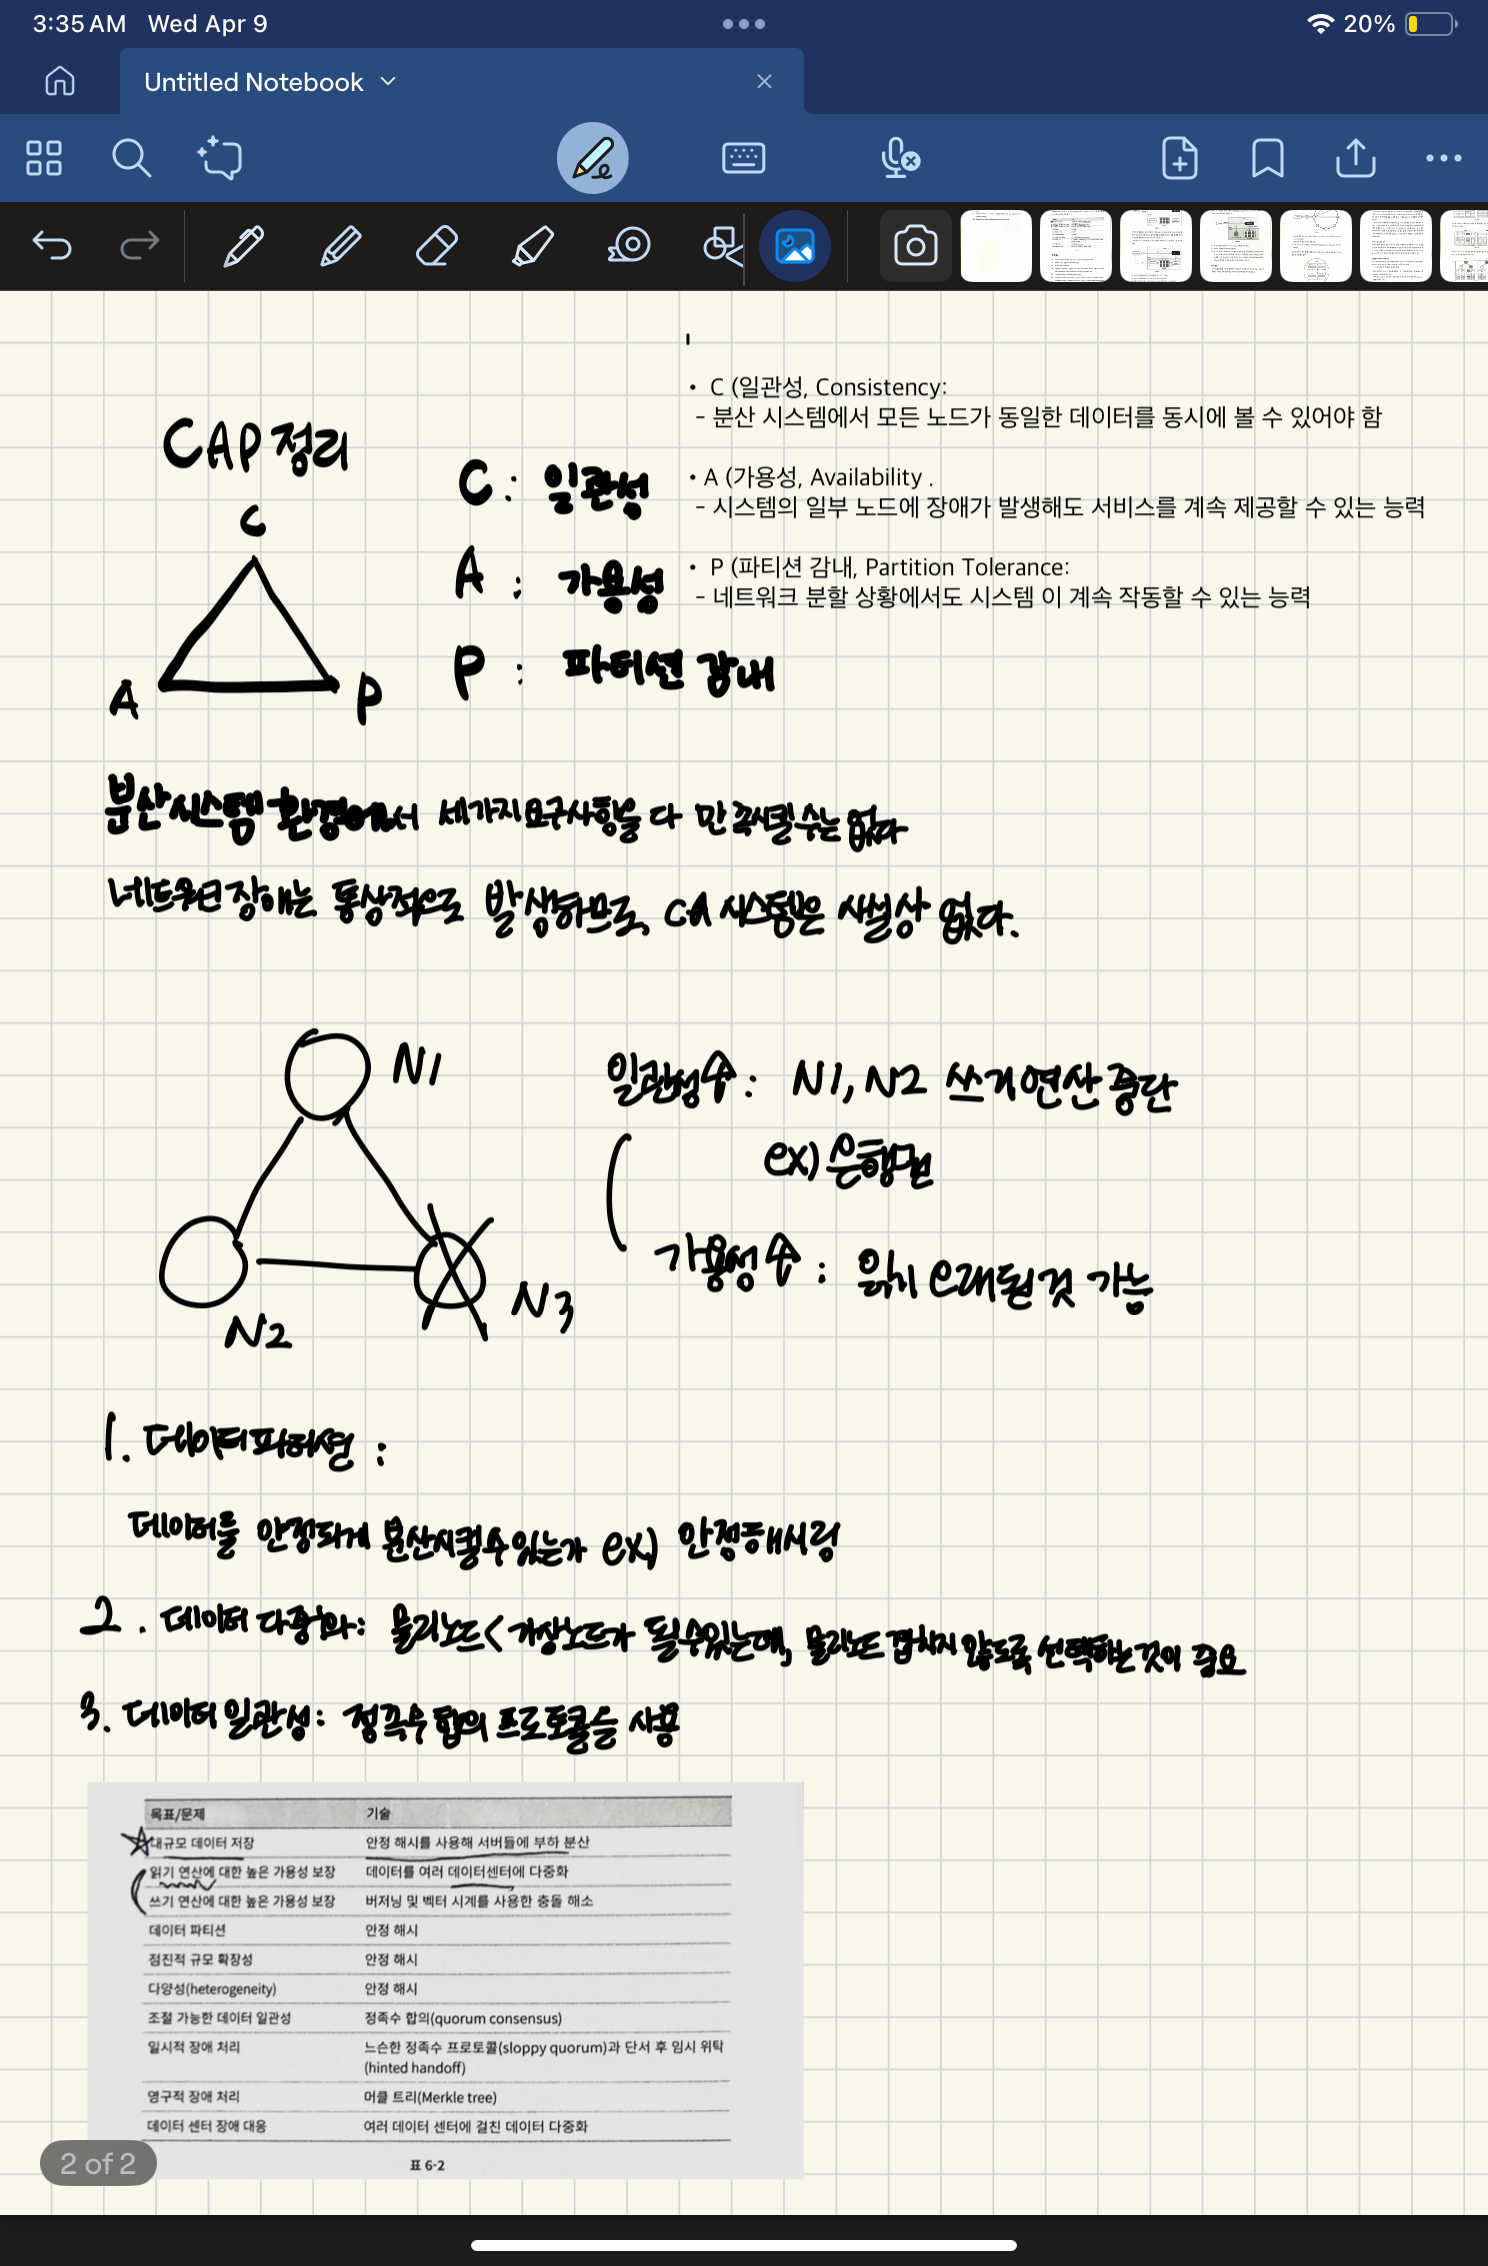 3:35 AM Wed Apr 9
20%
Untitled Notebook
CAP 정리
C
A
P
C : 일관성
A : 가용성
P : 파티션 감내
• C (일관성, Consistency:
- 분산 시스템에서 모든 노드가 동일한 데이터를 동시에 볼 수 있어야 함
• A (가용성, Availability .
- 시스템의 일부 노드에 장애가 발생해도 서비스를 계속 제공할 수 있는 능력
• P (파티션 감내, Partition Tolerance:
- 네트워크 분할 상황에서도 시스템 이 계속 작동할 수 있는 능력
분산시스템 환경에서 세가지 요구사항을 다 만족시킬 수는 없다
네트워크 장애는 통상적으로 발생하므로, CA 시스템은 사실상 없다.
N1
N2
N3
일관성↑ : N1, N2 쓰기 연산 중단
ex) 은행권
가용성↑ : 읽기 오래된 것 가능
1. 데이터 파티션 :
데이터를 안정되게 분산시킬 수 있는가 ex) 안정해시링
2. 데이터 다중화 : 물리노드 < 가상노드가 될 수 있는데, 물리노드 겹치지 않도록 선택하는 것이 중요
3. 데이터 일관성 : 정족수 합의 프로토콜을 사용
목표/문제 기술
대규모 데이터 저장 안정 해시를 사용해 서버들에 부하 분산
읽기 연산에 대한 높은 가용성 보장 데이터를 여러 데이터센터에 다중화
쓰기 연산에 대한 높은 가용성 보장 버저닝 및 벡터 시계를 사용한 충돌 해소
데이터 파티션 안정 해시
점진적 규모 확장성 안정 해시
다양성(heterogeneity) 안정 해시
조절 가능한 데이터 일관성 정족수 합의(quorum consensus)
일시적 장애 처리 느슨한 정족수 프로토콜(sloppy quorum)과 단서 후 임시 위탁
(hinted handoff)
영구적 장애 처리 머클 트리(Merkle tree)
데이터 센터 장애 대응 여러 데이터 센터에 걸친 데이터 다중화
표 6-2
2 of 2